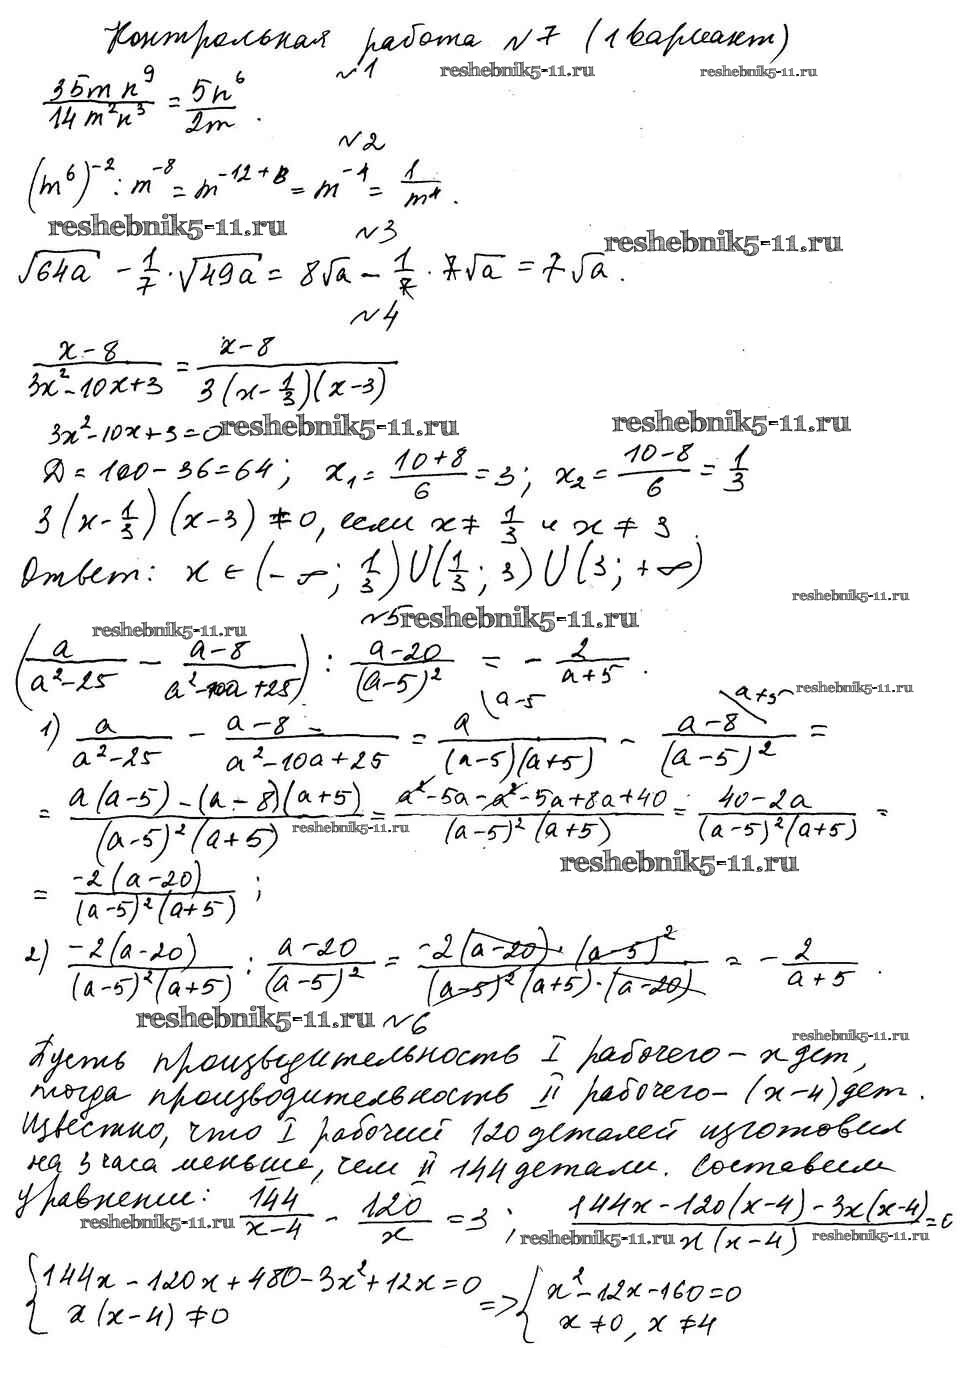 Контрольная работа №7 (1 вариант)
№1 reshebnik5-11.ru reshebnik5-11.ru
35mn⁹/14m²n³ = 5n⁶/2m.
№2
(m⁶)⁻² : m⁻⁸ = m⁻¹²⁺⁸ = m⁻⁴ = 1/m⁴.
reshebnik5-11.ru №3 reshebnik5-11.ru
√64a − 1/7 · √49a = 8√a − 1/7 · 7√a = 7√a.
№4
(x−8)/(3x²−10x+3) = (x−8)/(3(x−1/3)(x−3))
3x²−10x+3=0 reshebnik5-11.ru reshebnik5-11.ru
D = 100−36=64; x₁ = (10+8)/6 = 3; x₂ = (10−8)/6 = 1/3
3(x−1/3)(x−3) ≠ 0, если x ≠ 1/3 и x ≠ 3.
Ответ: x ∈ (−∞; 1/3) ∪ (1/3; 3) ∪ (3; +∞)
reshebnik5-11.ru
reshebnik5-11.ru №5 reshebnik5-11.ru
(a/(a²−25) − (a−8)/(a²−10a+25)) : (a−20)/(a−5)² = − 2/(a+5).
reshebnik5-11.ru
1) a/(a²−25) − (a−8)/(a²−10a+25) = a\a−5/((a−5)(a+5)) − (a−8)\a+5/(a−5)² =
= (a(a−5)−(a−8)(a+5))/((a−5)²(a+5)) = (a²−5a−a²−5a+8a+40)/((a−5)²(a+5)) = (40−2a)/((a−5)²(a+5)) =
reshebnik5-11.ru
reshebnik5-11.ru
= −2(a−20)/((a−5)²(a+5));
2) −2(a−20)/((a−5)²(a+5)) : (a−20)/(a−5)² = −2(a−20)·(a−5)²/((a−5)²(a+5)·(a−20)) = − 2/(a+5).
reshebnik5-11.ru №6
reshebnik5-11.ru
Пусть производительность I рабочего − x дет,
тогда производительность II рабочего − (x−4) дет.
Известно, что I рабочий 120 деталей изготовил
на 3 часа меньше, чем II 144 детали. Составим
уравнение: 144/(x−4) − 120/x = 3; (144x−120(x−4)−3x(x−4))/(x(x−4)) = 0
reshebnik5-11.ru reshebnik5-11.ru reshebnik5-11.ru
{144x−120x+480−3x²+12x=0 => {x²−12x−160=0
x(x−4)≠0 x≠0, x≠4